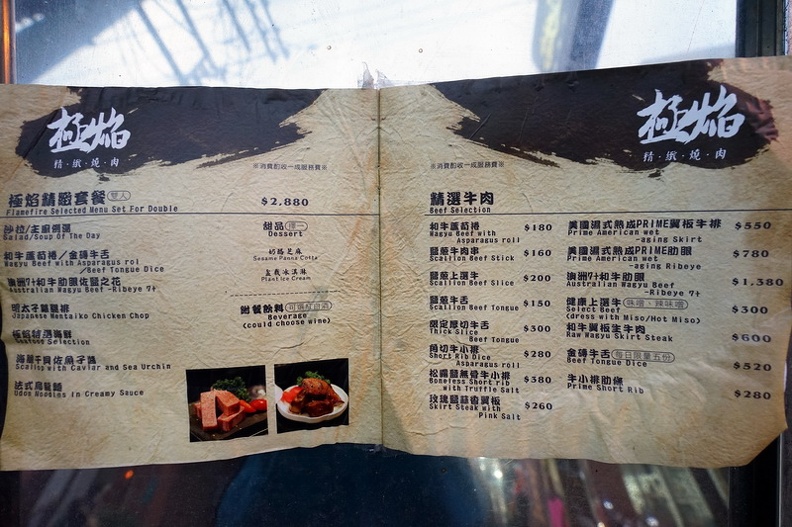 極焰
精·緻·燒·肉
※消費酌收一成服務費※
極焰精緻套餐 雙人 $2,880
Flamefire Selected Menu Set For Double
沙拉/主廚例湯
Salad/Soup Of The Day
和牛蘆筍捲/金磚牛舌
Wagyu Beef with Asparagus rol
/Beef Tongue Dice
澳洲7+和牛肋眼佐鹽之花
Australian Wagyu Beef -Ribeye 7+
明太子雞腿排
Japanese Mentaiko Chicken Chop
極焰精選海鮮
Seafood Selection
海膽干貝佐魚子醬
Scallop with Caviar and Sea Urchin
法式烏龍麵
Udon Noodles in Creamy Sauce
甜品 擇一
Dessert
奶酪芝麻
Sesame Panna Cotta
盆栽冰淇淋
Plant Ice Cream
附餐飲料 可選配紅酒
Beverage
(could choose wine)
極焰
精·緻·燒·肉
※消費酌收一成服務費※
精選牛肉
Beef Selection
和牛蘆筍捲 $180
Wagyu Beef with
Asparagus roll
鹽蔥牛肉串 $160
Scallion Beef Stick
鹽蔥上選牛 $200
Scallion Beef Slice
鹽蔥牛舌 $150
Scallion Beef Tongue
限定厚切牛舌 $300
Thick Slice
Beef Tongue
角切牛小排 $280
Short Rib Dice
Asparagus roll
松露鹽無骨牛小排 $380
Boneless Short rib
with Truffle Salt
玫瑰鹽蒜香翼板 $260
Skirt Steak with
Pink Salt
美國濕式熟成PRIME翼板牛排 $550
Prime American wet
-aging Skirt
美國濕式熟成PRIME肋眼 $780
Prime American wet
-aging Ribeye
澳洲7+和牛肋眼 $1,380
Australian Wagyu Beef
-Ribeye 7+
健康上選牛 味噌、辣味噌 $300
Select Beef
(dress with Miso/Hot Miso)
和牛翼板生牛肉 $600
Raw Wagyu Skirt Steak
金磚牛舌 每日限量五份 $520
Beef Tongue Dice
牛小排肋條 $280
Prime Short Rib